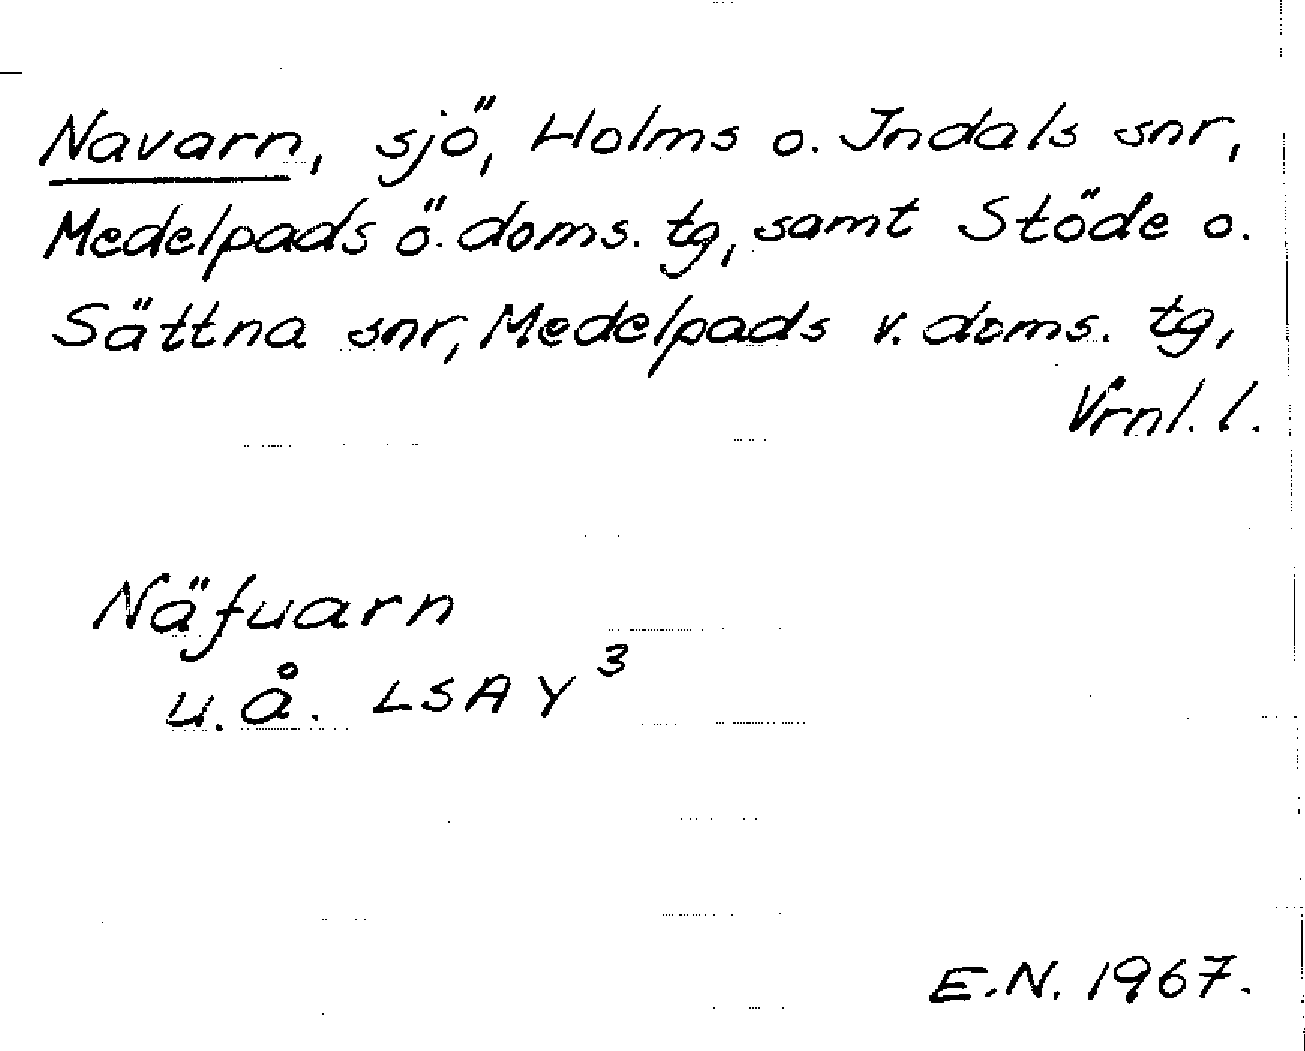 Navarn, sjö, Holms o. Indals snr,
Medelpads ö. doms. tg, samt Stöde o.
Sättna snr, Medelpads v. doms. tg,
Vrnl. l.
Näfuarn
u.å. LSA Y³
E.N. 1967.